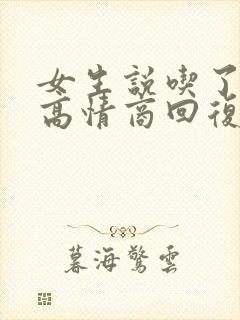 女生説喫了
高情商回復
暮海驚雲